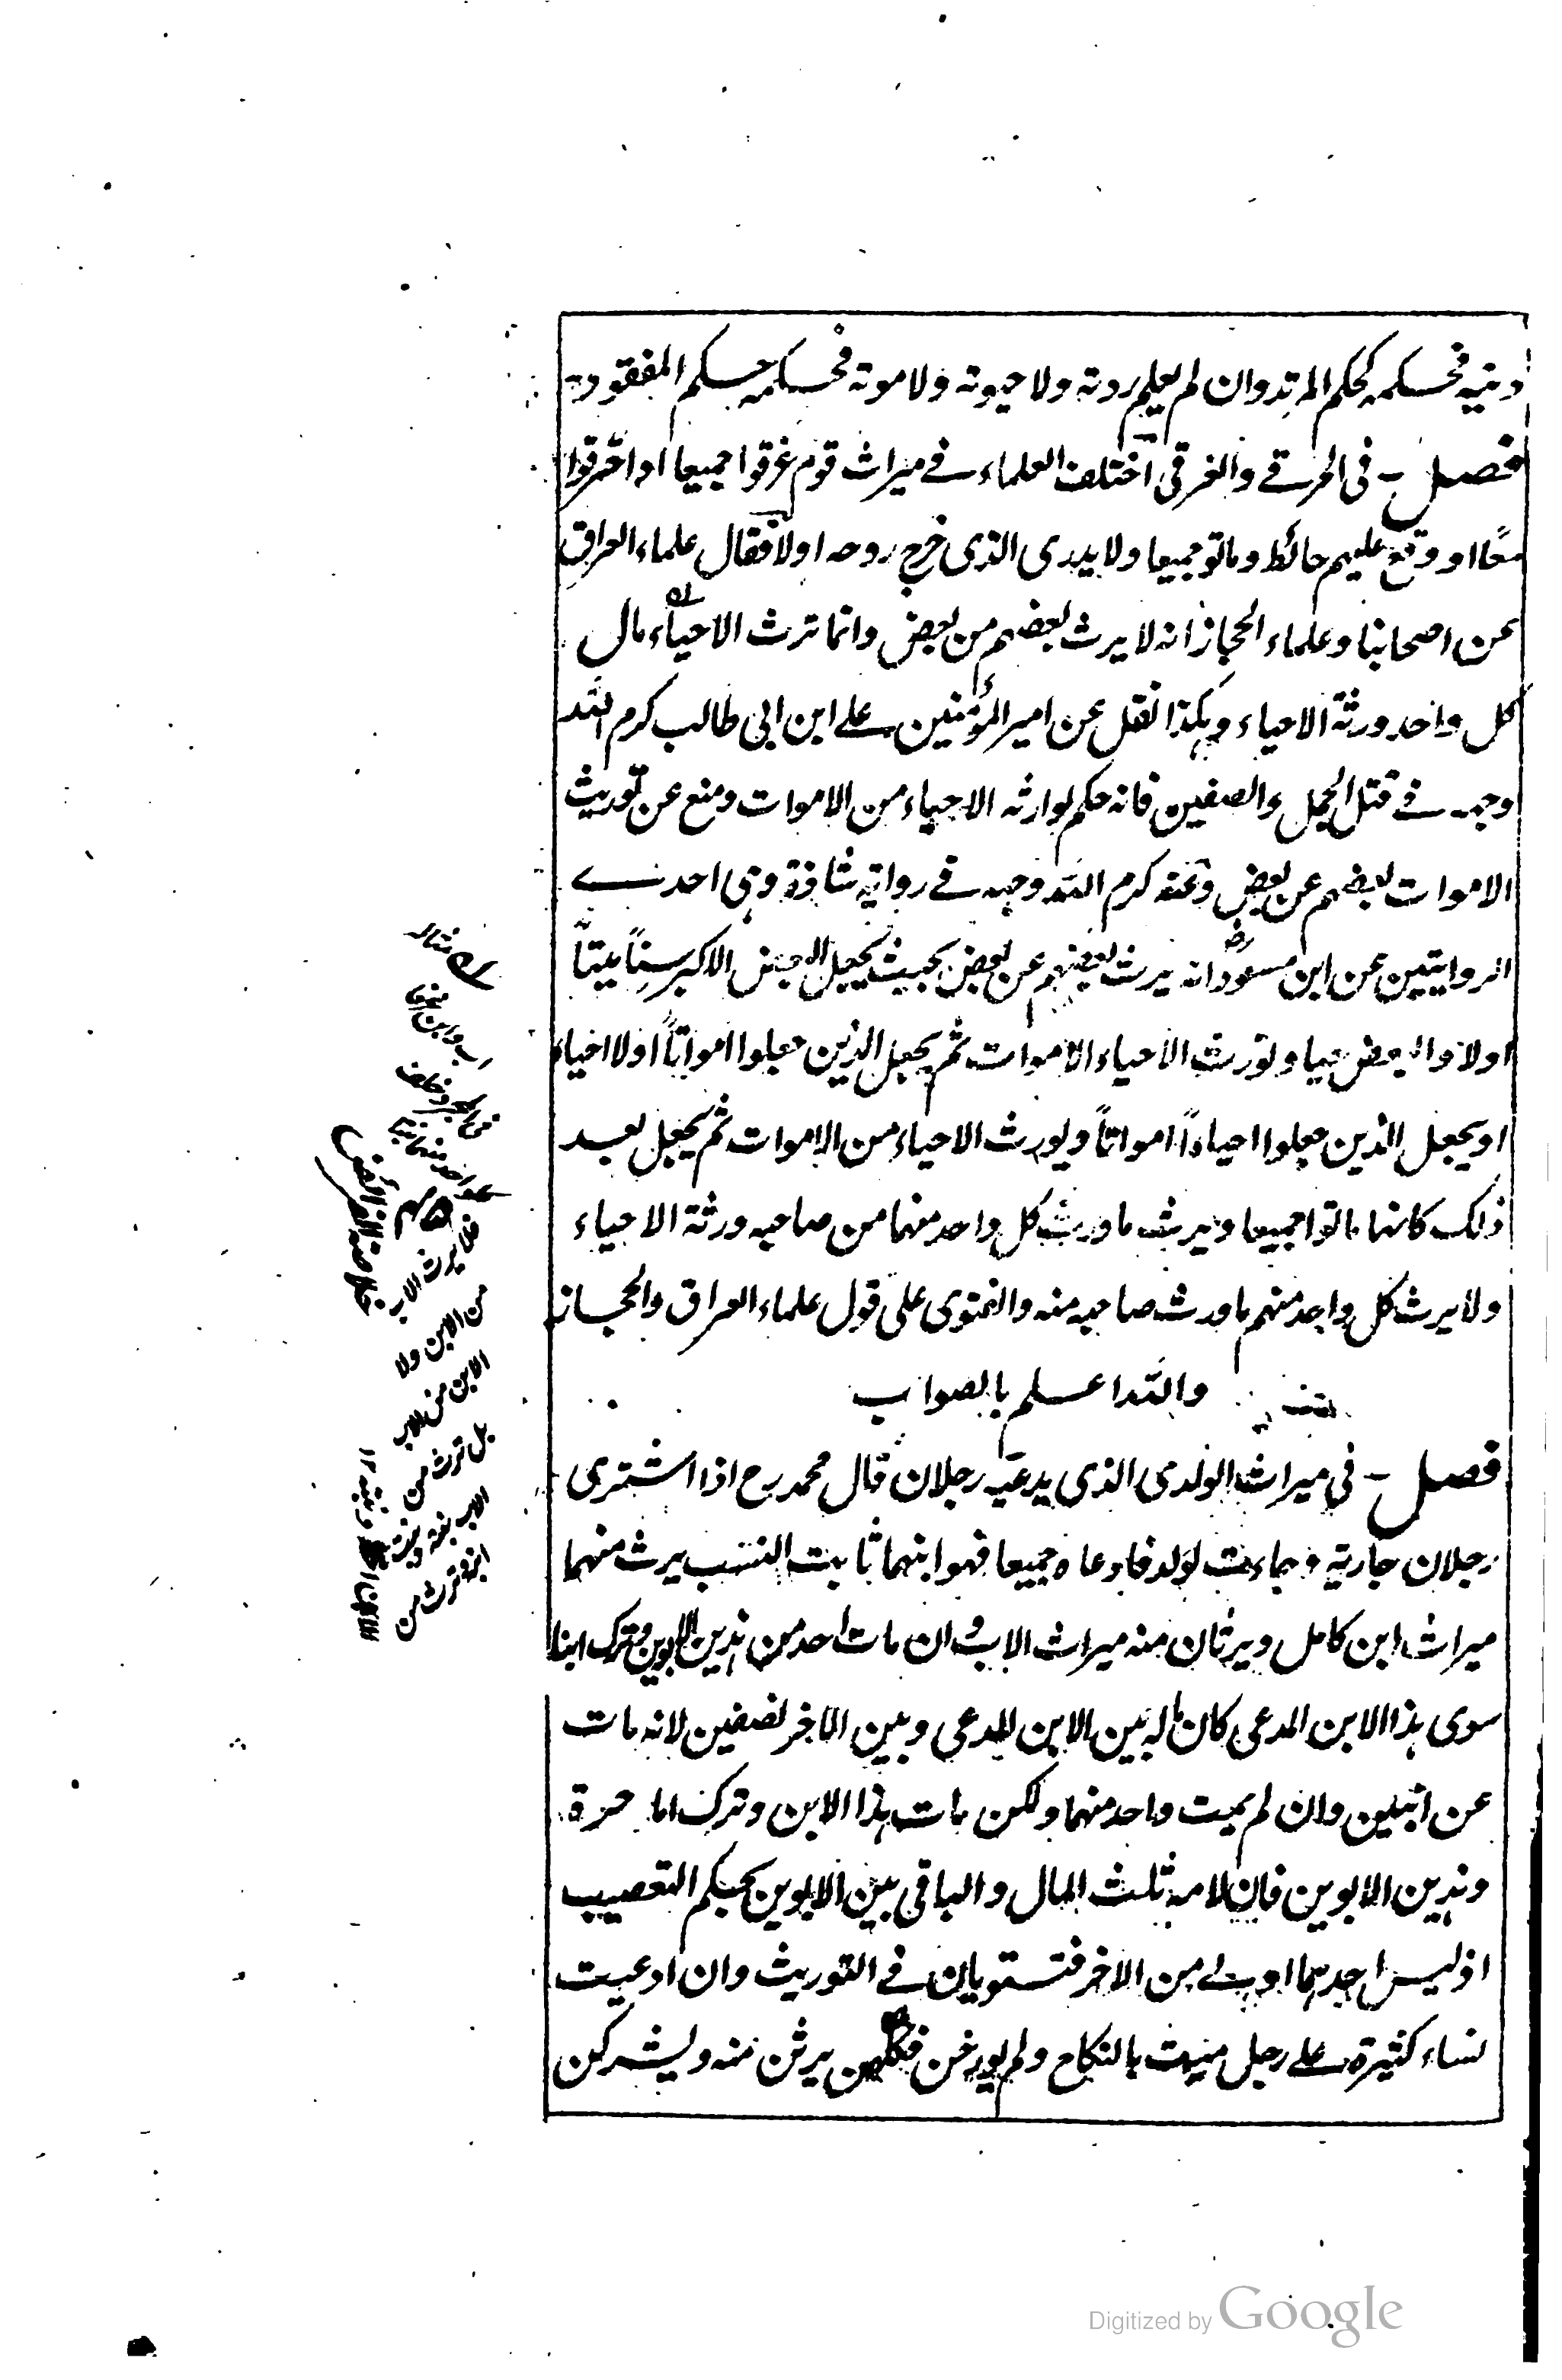 دينه فحكمه كحكم المرتد وان لم يعلم ردته ولا حيوته ولا موته فحكمه حكم المفقود
فصل في الحرقے والغرقى اختلف العلماء في ميراث قوم غرقوا جميعا او احرقوا
معًا او وقع عليهم حائط وماتو جميعا ولا يدرى الذى خرج روحه اولا فقال علماء العراق
عن اصحابنا وعلماء الحجاز انه لا يرث بعضهم من بعض وانما ترث الاحياء مال
كل واحد ورثة الاحياء وهكذا نقل عن امير المؤمنين علے ابن ابى طالب كرم الله
وجهه في قتل الجمل والصفين فانه حكم لوارثه الاحياء من الاموات ومنع عن توريث
الاموات بعضهم عن بعض وعنه كرم الله وجهه في رواية شاذة وهى احدے
الروايتين عن ابن مسعودؓ انه يرث بعضهم عن بعض بحيث يجعل البعض الاكبر سِنّاً ميتاً
اولا والبعض حيا ويورث الاحياء الاموات ثم يجعل الذين جعلوا امواتاً اولا احياء
او يجعل الذين جعلوا احياءاً امواتاً ويورث الاحياء من الاموات ثم يجعل بعد
ذلك كانهما ماتوا جميعا ويرث ما ورث كل واحد منهما من صاحبه ورثة الاحياء
ولا يرث كل واحد منهم ما ورث صاحبه منه والفتوى على قول علماء العراق والحجاز
والله اعلم بالصواب
فصل في ميراث الولدى الذى يدعيه رجلان قال محمد رح اذا اشترى
رجلان جارية وجاءت لولد فادعاه جميعا فهو ابنهما ثابت النسب يرث منهما
ميراث ابن كامل ويرثان منه ميراث الاب وان مات احد من هذين الابوين وترك ابنا
سوى هذا الابن المدعى كان ماله بين الابن المدعى وبين الاخر نصفين لانه مات
عن ابنين وان لم يمت واحد منهما ولكن مات هذا الابن وترك اما حرة
وهذين الابوين فان لامه ثلث المال والباقى بين الابوين بحكم التعصيب
اذ ليس احدهما اولے من الاخر فتستويان في التوريث وان ادعيت
نساء كثيرة علے رجل ميت بالنكاح ولم يورخن فكلهن يرثن منه ويشركن
له مثاله
فلا يرث الاب
من الابن ولا
الابن من الاب
بل ترث من
الاب بنته
ابنه ترث من
Digitized by Google